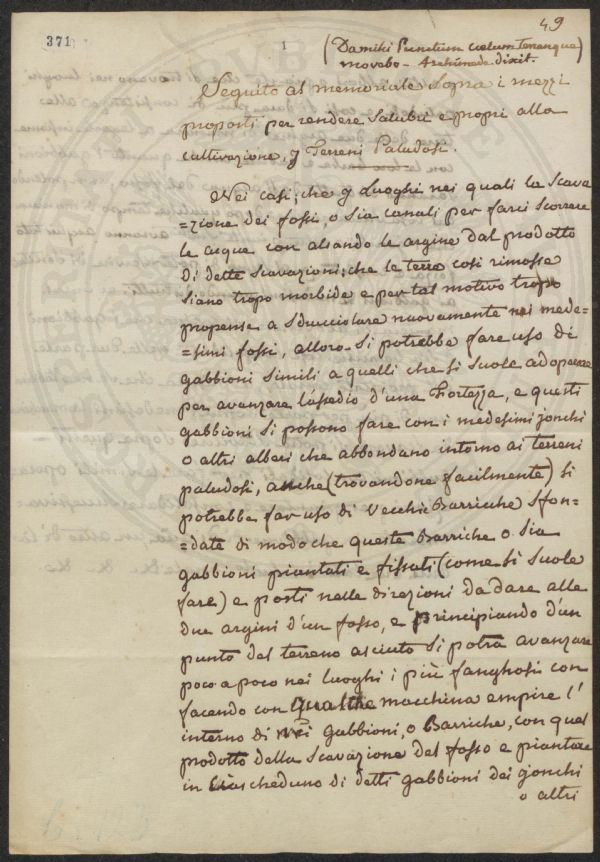 49
371
1
(Da mihi Punctum cælum Terramque)
movebo - Archimede dixit.
Seguito al memoriale Sopra i mezzi
proposti per rendere Salubri e propri alla
cultivazione, gl Terreni Paludosi.
Nei casi; che gl Luoghi nei quali la Scava
=zione dei fossi, o sia canali per farci Scorrere
le acque con alsando le argine dal prodotto
di dette Scavazioni; che le terre cosi rimosse
Siano tropo morbide e per tal motivo tropo
propense a Sdrucciolare nuovamente nei mede=
=simi fossi, allora Si potrebbe fare uso di
gabbioni Simili a quelli che si Suole adoperare
per avanzare l'assedio d'una Fortezza, e questi
gabbioni Si possono fare con i medesimi jonchi
o altri alberi che abbondano intorno ai terreni
paludosi, anche (trovandone facilmente) si
potrebbe far uso di Vecchie Barriche Sfon=
=date di modo che queste Barriche o Sia
gabbioni piantati e fissati (come Si Suole
fare) e posti nelle direzioni da dare alle
due argini d'un fosso, e principiando d'un
punto del terreno asciuto Si potrà avanzare
poco a poco nei Luoghi i più fanghosi con
facendo con qualche macchina empire l'
interno di Gabbioni, o Barriche, con quel
prodotto dalla Scavazione del fosso e piantare
in ciascheduno di detti gabbioni dei jonchi
o altri